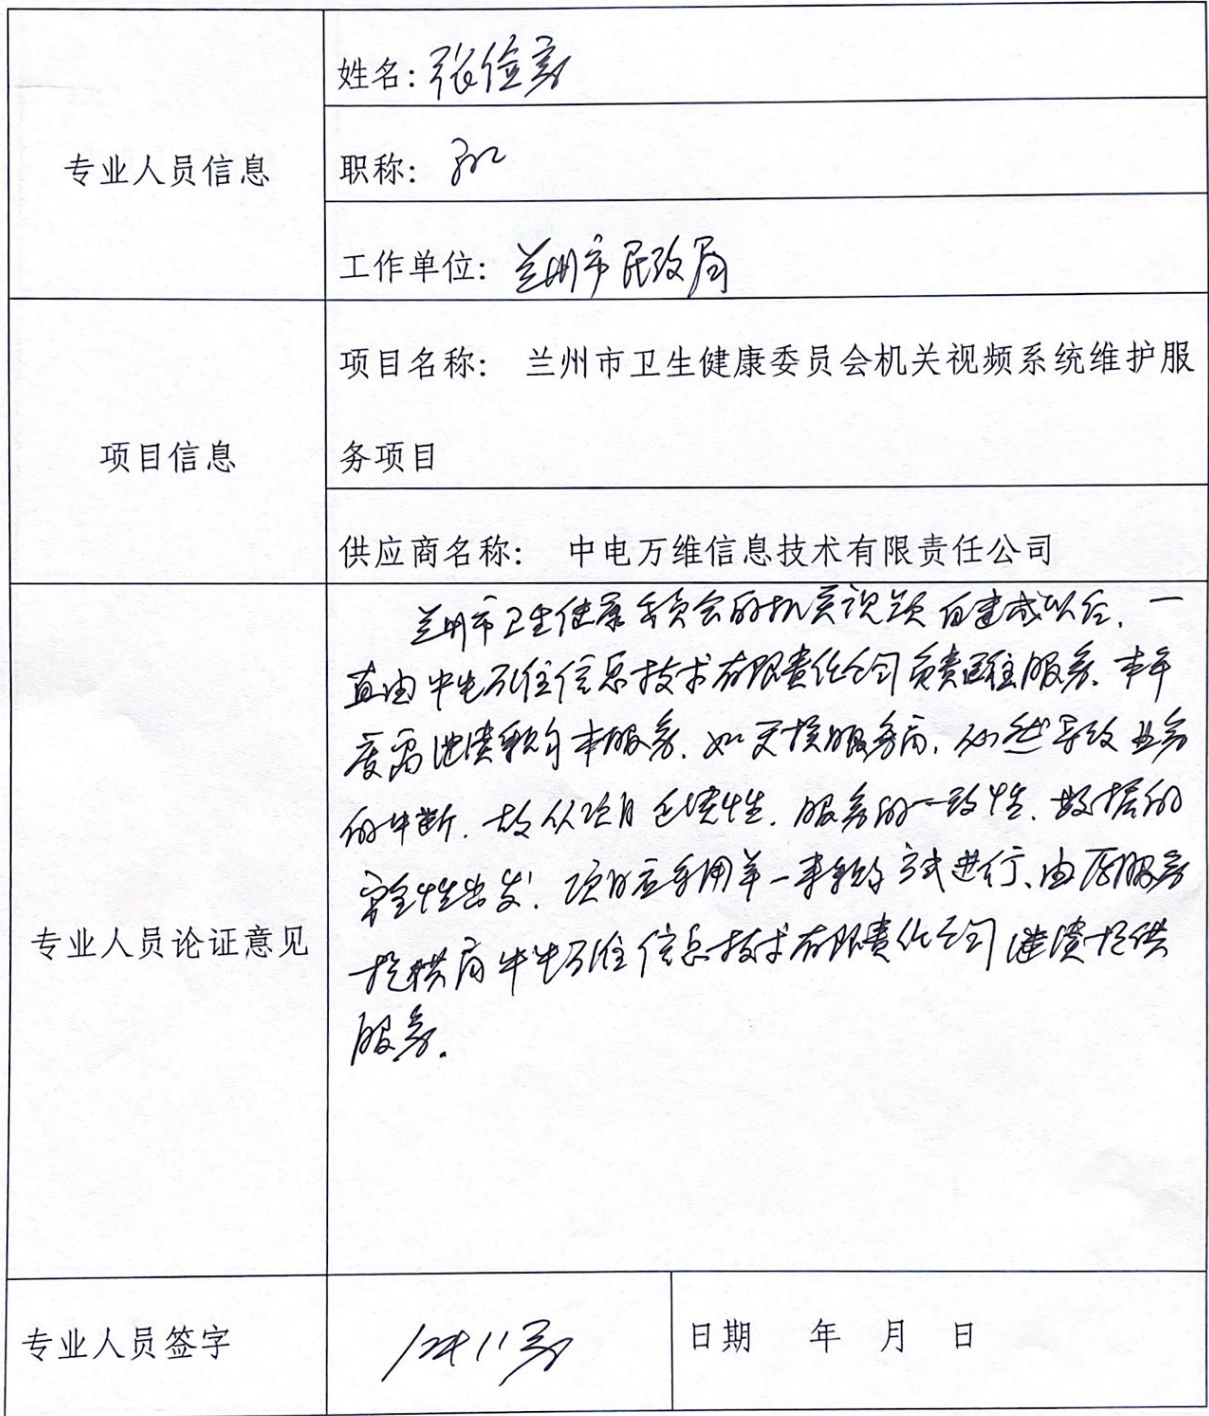 专业人员信息
姓名: 张
职称:
工作单位: 兰州市民政局
项目信息
项目名称: 兰州市卫生健康委员会机关视频系统维护服
务项目
供应商名称: 中电万维信息技术有限责任公司
专业人员论证意见
兰州市卫生健康委员会的机关视频自建成以后,一
直由中电万维信息技术有限责任公司负责运维服务.本年
度需继续采购本服务.如更换服务商,必然导致业务
的中断.故从项目连续性.服务的一致性.数据的
安全性出发.项目应采用单一采购方式进行、由原服务
提供商中电万维信息技术有限责任公司继续提供
服务.
专业人员签字
日期 年 月 日